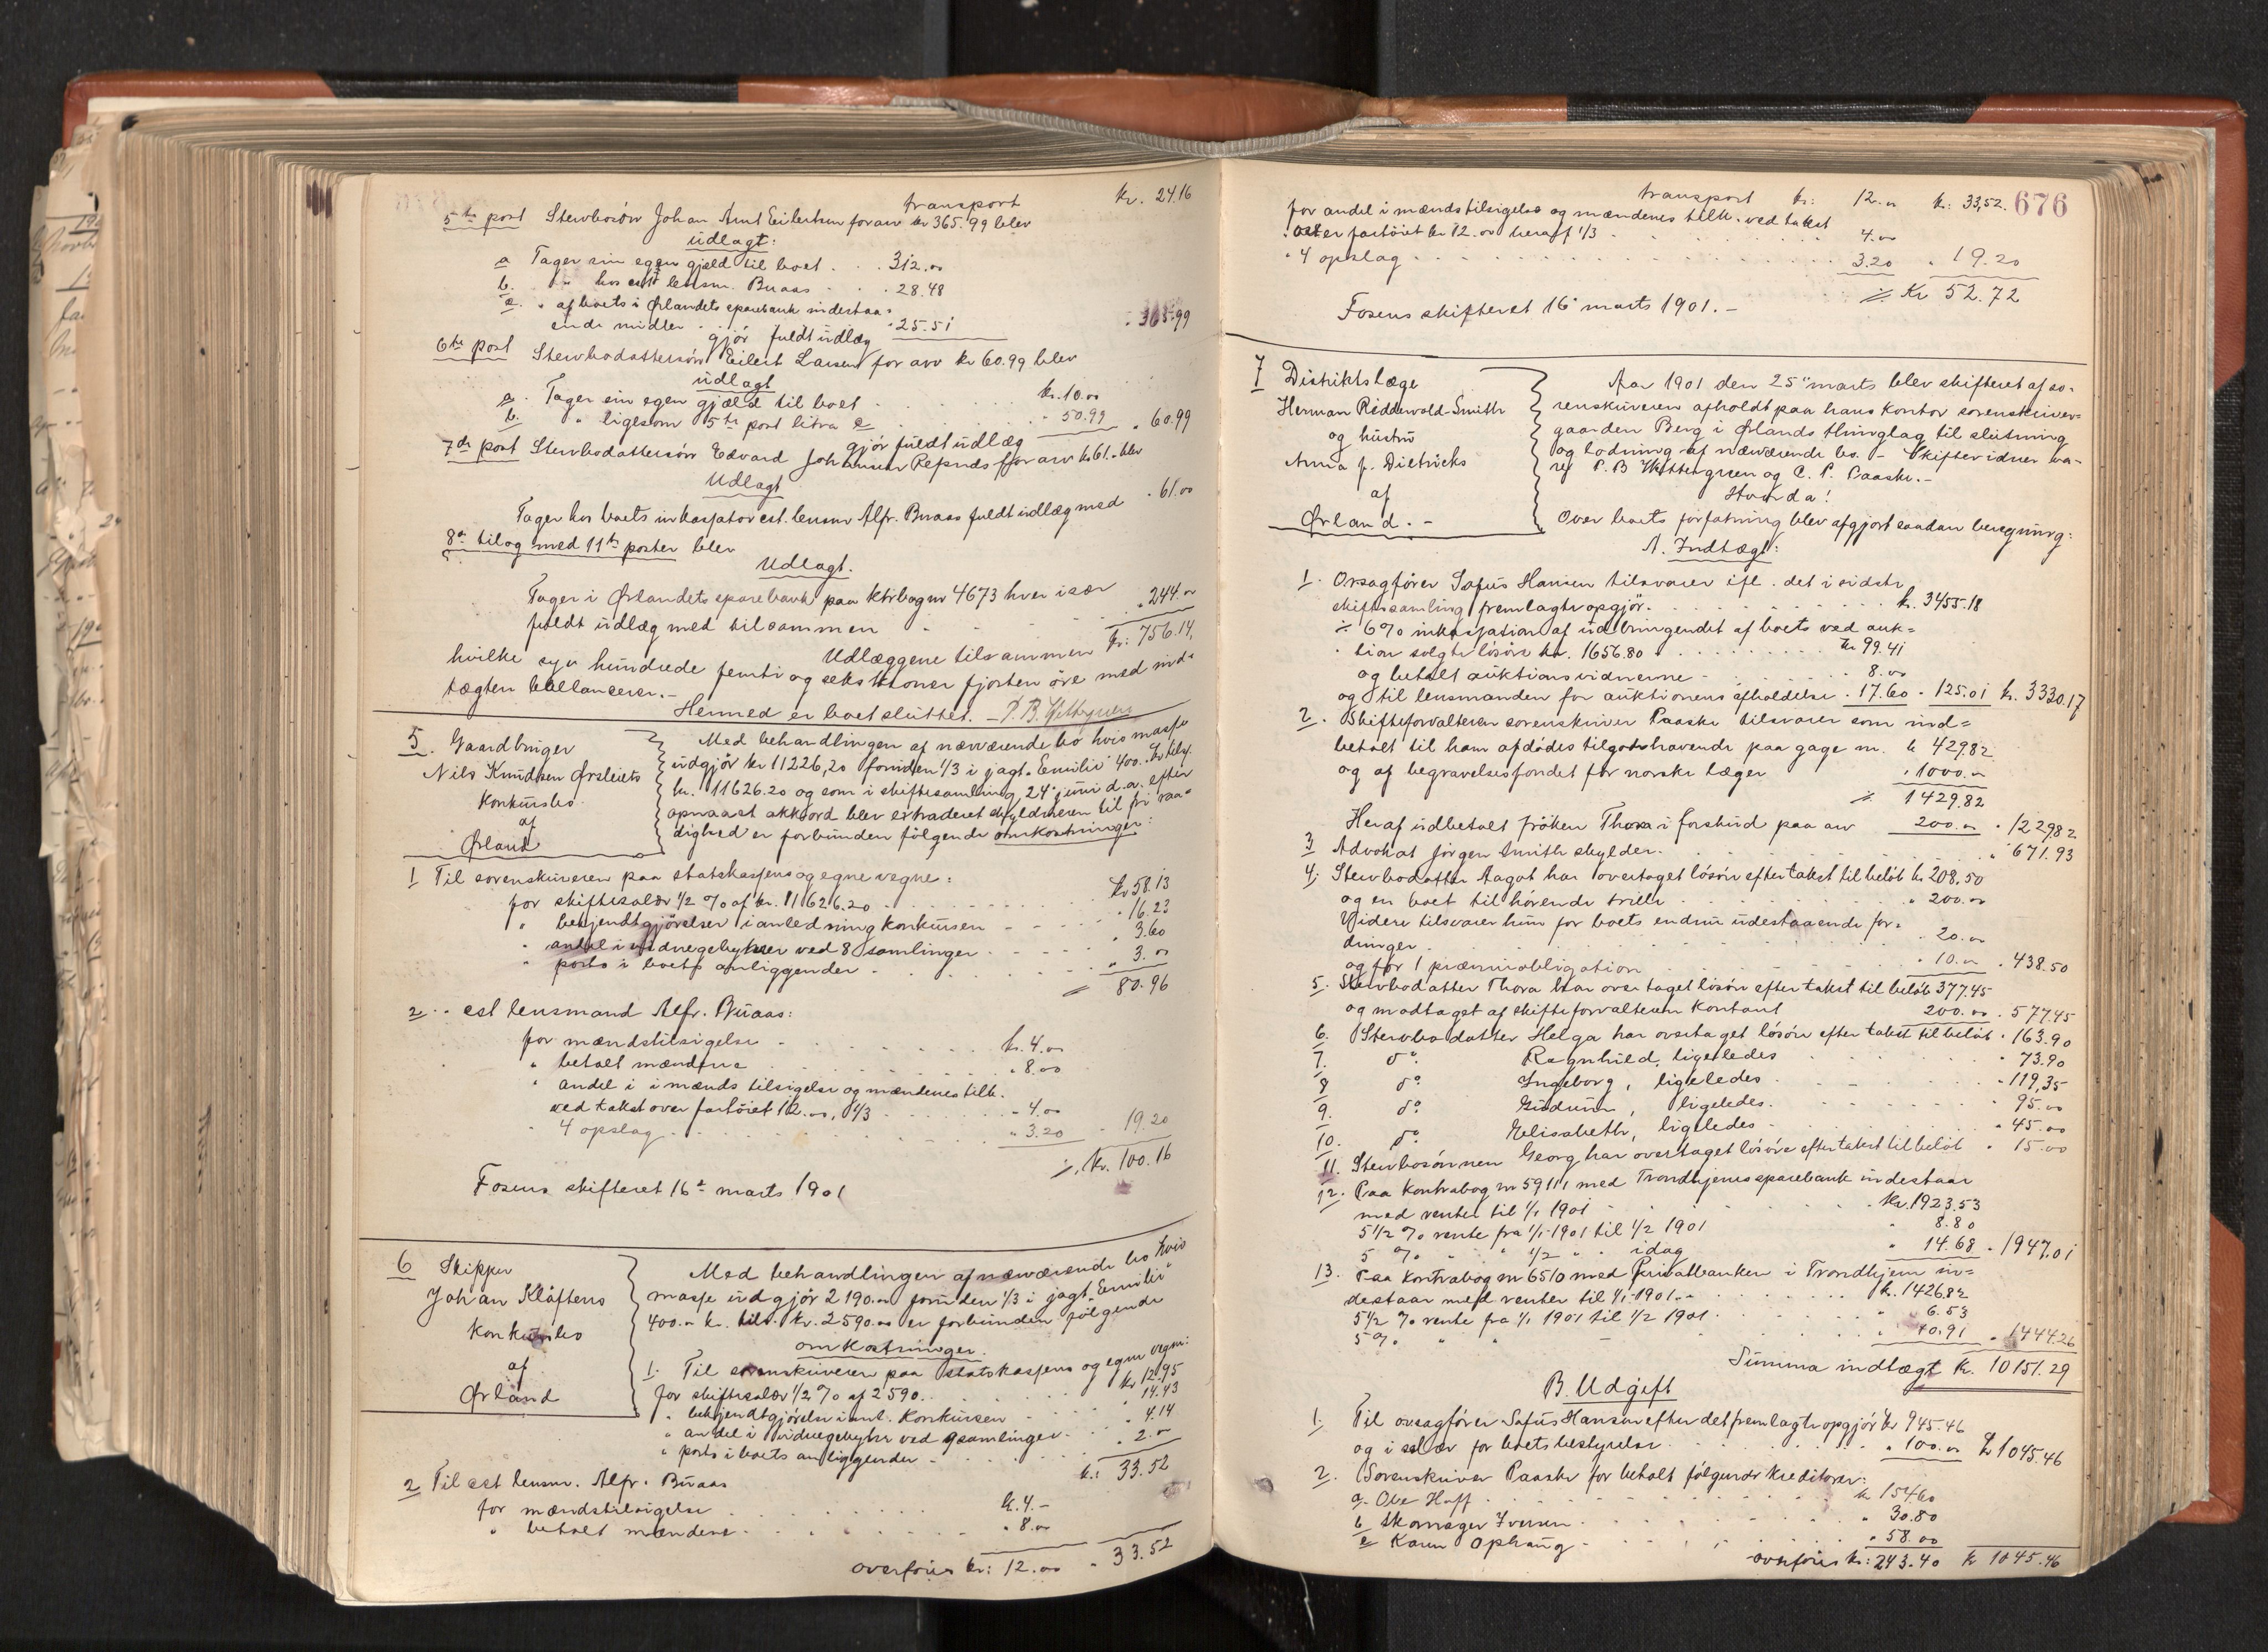 transport kr. 24.16
5te post Stervbosön Johan Arnt Eilertsen for arv kr 365.99 blev
udlagt:
a Tager sin egen gjæld til boet . . . 312.00
b. " hos cst lensm. Buaas . . . 28.48
c. " af boets i Ørlandets sparebank indestaa=
ende midler . . . " 25.51
gjör fuldt udlæg " 365.99
6te post Stervbodattersön Eilert Larsen for arv kr 60.99 blev
udlagt
a. Tager sin egen gjæld til boet . kr. 10.00
b. " ligesom 5te post litra c " 50.99 " 60.99
gjör fuldt udlæg
7de post Stervbodattersön Edvard Johansen Refsnes for arv kr 61.- blev
Udlagt
Tager hos boets inkassator cst. lensm Alfr. Buaas fuldt udlæg med . 61.00
8de til og med 11te poster blev
Udlagt.
Tager i Ørlandets sparebank paa ktrbog nr 4673 hver især
fuldt udlæg med tilsammen . . . 244.00
Udlæggene tilsammen kr: 756.14,
hvilke syv hundrede femti og seks kroner fjorten öre med ind=
tægten ballancerer.-
Hermed er boet sluttet. - P. B. Wettergreen
5. Gaardbruger
Nils Knudsen Ørsleiets
Konkursbo
af
Ørland
Med behandlingen af nærværende bo hvis masse
udgjör kr 11226,20 foruden 1/3 i jagt "Emilie" 400.- kr tils.
kr. 11626.20 og som i skiftesamling 24de juni d.a. efter
opnaaet akkord blev extraderet skyldneren til fri raa=
dighed er forbunden fölgende omkostninger:
1 Til sorenskriveren paa statskassens og egne vegne:
for skiftesalær 1/2 % af kr. 11626.20 . . . kr 58.13
" bekjendtgjörelser i anledning konkursen . . . " 16.23
" andel i vidnegebyhrer ved 8 samlinger . . . " 3.60
" porto i boets anliggender . . . " 3.00
80.96
2 " cst lensmand Alfr. Buaas:
for mændstilsigelse . . . kr. 4.00
" betalt mændene . . . " 8.00
" andel i i mænds tilsigelse og mændenes tilk.
ved takst over fartöiet 12.00, 1/3 . . . " 4.00
" 4 opslag . . . " 3.20 " 19.20
kr. 100.16
Fosens skifteret 16de marts 1901
6 Skipper
Johan Klåftens
Konkursbo
af
Ørland
Med behandlingen af nærværende bo hvis
masse udgjör 2190.00 foruden 1/3 i jagt "Emilie"
400.00 kr. tils. kr. 2590.00 er forbunden fölgende
omkostninger.
1. Til sorenskriveren paa statskassens og egne vegne:
for skiftesalær 1/2 % af 2590. . . kr 12.95
" bekjendtgjörelse i anl. konkursen . . 14.43
" andel i vidnegebyhr ved 9 samlinger . " 4.14
" porto i boets anliggender . . " 2.00
kr: 33.52
2 Til cst lensm. Alfr. Buaas
for mændstilsigelse . . . kr. 4.-
" betalt mændene . . . " 8.00
overföres kr: 12.00 " 33.52
transport kr: 12.00 kr: 33,52. 676
for andel i mændstilsigelse og mændenes tilk. ved takst
over fartöiet kr 12.00 heraff 1/3 . . . 4.00
" 4 opslag . . . 3.20 " 19.20
Kr 52.72
Fosens skifteret 16de marts 1901.-
7 Distriktslæge
Herman Riddervold-Smith
og hustru
Anna f. Dietrichs
af
Ørland.-
Aar 1901 den 25de marts blev skifteret af so=
renskriveren afholdt paa hans kontor sorenskriver=
gaarden Berg i Ørlands thinglag til slutning
og lodning af nærværende bo. - Skiftevidner va=
re P. B Wettergreen og C. P. Paaske.-
Hvorda!
Over boets forfatning blev afgjort saadan beregning:
A. Indtægt:
1. Orsagförer Sofus Hansen tilsvarer ifl. det i sidste
skiftesamling fremlagte opgjör . . . kr. 3455.18
÷ 6% inkassation af udbringendet af boets ved auk=
tion solgte lösöre kr. 1656.80 . . . kr 99.41
og betalt auktionsvidnerne . . 8.00
og til lensmanden for auktionens afholdelse . 17.60 . 125.01 kr. 3330.17
2. Skifteforvalteren sorenskriver Paaske tilsvarer som ind=
betalt til ham afdödes tilgodehavende paa gage m. kr 429.82
og af begravelsesfondet for norske læger " 1000.00
1429.82
Heraf udbetalt fröken Thora i forskud paa arv 200.00 " 1229.82
3 Advokat Jörgen Smith skylder . . . " 671.93
4. Stervbodatter Aagot har overtaget lösöre efter takst til beløb kr 208.50
og en boet tilhörende trille . . . " 200.00
Videre tilsvarer hun for boets endnu udestaaende for=
dringer . . . 20.00
og for 1 præmieobligation . . . " 10.00 . 438.50
5. Stervbodatter Thora har overtaget lösöre efter takst til beløb 377.45
og modtaget af skifteforvalteren kontant 200.00 . 577.45
6. Stervbodatter Helga har overtaget lösöre efter takst til beløb . 163.90
7. do. Ragnhild, ligeledes . . " 73.90
8 do. Ingeborg, ligeledes . . " 119.35
9. do. Gudrun, ligeledes . . " 95.00
10. do. Elisabeth, ligeledes . . " 45.00
11. Stervbosönnen Georg har overtaget lösöre efter takst til beløb " 15.00
12. Paa kontrabog nr 59111 med Trondhjems sparebank indestaar
med renter til 1/1 1901 . . . kr. 1923.53
5 1/2 % rente fra 1/1-1901 til 1/2 1901 " 8.80
5 % " " 1/2 " " idag " 14.68 . 1947.01
13. Paa kontrabog nr 6510 med Privatbanken i Trondhjem in=
destaar med renter til 1/1-1901.. . . . kr. 1426.82
5 1/2 % rente fra 1/1 1901 til 1/2 1901 . . " 6.53
5 % " " . . . " 10.91 " 1444.26
Summa indtægt kr. 10151.29
B. Udgift
1. Til orsagförer Sofus Hansen efter det fremlagte opgjör kr 945.46
og i salær for boets bestyrelse . . . " 100.00 kr 1045.46
2. Sorenskriver Paaske for betalt fölgende kreditorer:
a. Ole Hoff . . . kr 154.60
b Skomager Iversen . . . " 30.80
c Karen Ophaug . . . " 58.00
overföres kr: 243.40 kr 1045.46